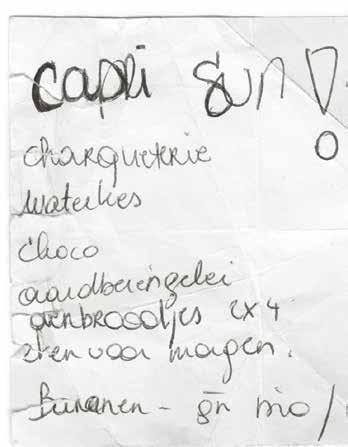 capri sun!
charqueterie
waterkes
choco
aardbeiengelei
ovenbroodjes 2x4
eten voor morgen.
Bananen - gn bio /